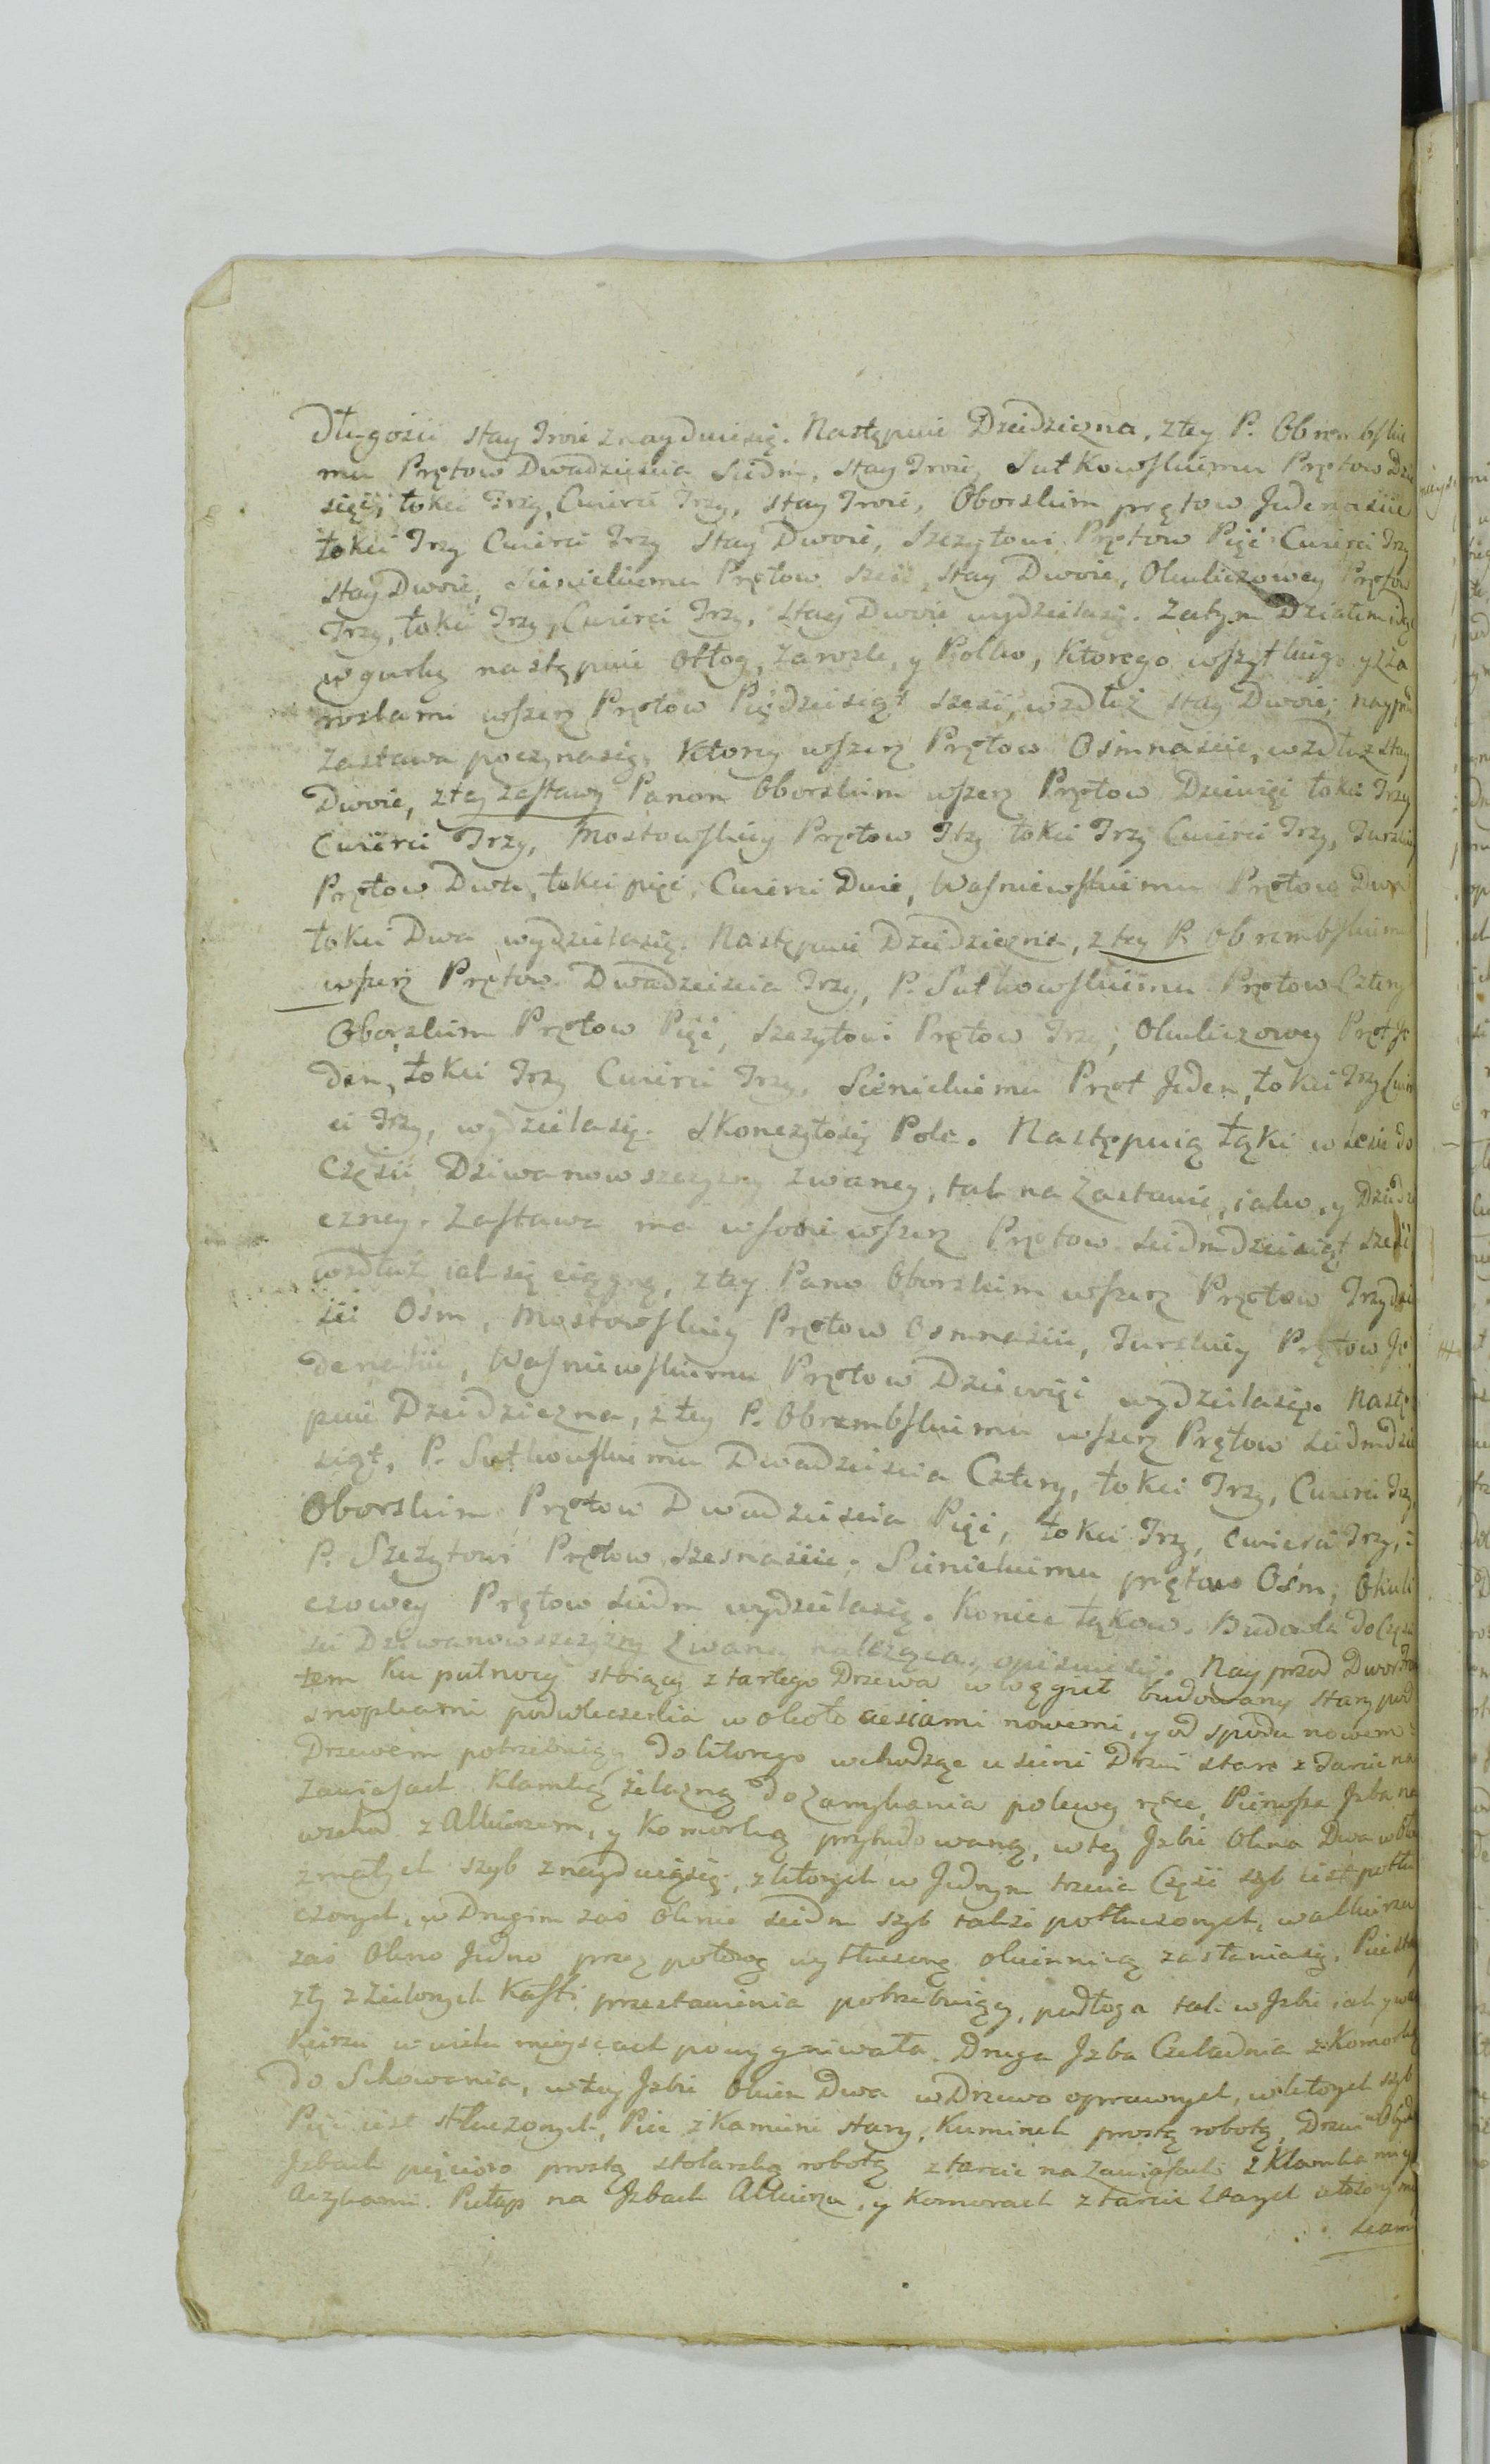 Długości stay Troie znayduiesię. Następuie Dziedziczna, ztey P. Obrembskie
mu Prętow Dwadziescia Siedm, stay Troie, Sutkowskiemu Prętow Dzie
sięć, łokci Trzy, Cwierci Trzy, stay Troie, Oborskim prętow Jedenaście
łokci Trzy Cwierci Trzy Stay Dwoie, Szczytowi Prętow Pięć Cwierci Trzy
stay Dwoie, Sienickiemu Prętow Sześć, stay Dwoie, Okuliczowey Prętow
Trzy, łokci Trzy, Cwierci Trzy, Stay Dwoie wydzielasię. Zatym Działem idąc
w gurkę następuie Otłog, Zarosle, y Polko, Ktorego wszytkiego yzZa
roslami wszerz Prętow Pięcdziesiąt szesć, wzdłuż stay Dwoie; nayprzod
Zastawa poczynasię, Ktorey wszerz Prętow Ośmnaście, wzdłuż stay
Dwoie, ztey zastawy Panom Oborskim wszerz Prętow Dziewięć łokci Trzy
Cwierci Trzy, Mostowskiey Prętow Trzy łokci Trzy Cwierci Trzy, Turskiey
Prętow Dwa, łokci pięć, Cwierci Dwie, Wasniewskiemu Prętow Dwa
łokci Dwa wydzielasię. Następuie Dziedziczna, ztey P. Obrembskiemu
wszerz Prętow Dwadziescia Trzy, P. Sutkowskiemu Prętow Cztery
Oborskim Prętow Pięć, Szczytowi Prętow Trzy, Okuliczowey Pręt Je
den, łokci Trzy Cwierci Trzy, Sienickiemu Pręt Jeden, łokci Trzy Cwier
ci Trzy, wydzielasię. Skończyłosię Pole. Następuią Łąki w lesie do
Częsci Dziwanowszczyzny zwaney, tak na Zastawie, iako y Dziedzi
czney. Zastawa ma wsobie wszerz Prętow Siedmdziesiąt sześć
wzdłuż iak się ciągną, ztey Panom Oborskim wszerz Prętow Trzydzie
ści Ośm, Mostowskiey Prętow Osmnaście, Turskiey Prętow Je
denaście, Wasniewskiemu Prętow Dziewięć wydzielasię. Nastę
puie Dziedziczna, ztey P. Obrembskiemu wszerz Prętow Siedmdzie
siąt, P. Sutkowskiemu Dwadziescia Cztery, łokci Trzy, Cwierci Trzy,
Oborskim Prętow Dwadziescia Pięć, łokci Trzy, cwierci Trzy,
P. Szczytowi Prętow Szesnaście, Sienickiemu prętow Ośm, Okuli
czowey Prętow Siedm wydzielasię. Koniec Łąkow. Budowla do Częs
ci Dziwanowszczyzny zwaney należąca, opisuiesię. Nayprzod Dwor
tem Ku pułnocy stoiący z tartego Drzewa w węgieł budowany stary pod
snopkami podwleczenia w około ciesiami nowemi, y od spodu nowem
Drzewem potrzebuiący, do ktorego wchodząc u sieni Drzwi stare z Tarcic na
Zawiasach Klamką żelazną do zamykania polewey ręce, Pierwsza Jzba na
wschod z Alkierzem, y Komorką przybudowaną, w tey Jzbie Okna Dwa w
z małych szyb znayduiąsię, z ktorych w Jednym trzecia Część szyb iest potłu
czonych, w Drugim zaś Oknie siedm szyb także potłuczonych, w alkierzu
zaś Okno Jedno przez połowę wytłuczone okiennicą zasłaniasię, Piec
zły z Zielonych Kafli przestawienia potrzebuiący, podłoga tak w Jzbie iak y w al
kierzu w wielu mieyscach powygniwała. Druga Jzba Czeladnia z Komorką
do Schowania, w tey Jzbie Okien Dwa w Drzewo oprawnych, w ktorych szyb
Pięć iest stłuczonych, Piec z Kamieni stary, Kuminek prostą robotą, Drzwi
Jzbach pięcioro prostą stolarską robotą z tarcic na Zawiasach z Klamkami y
Aczykami. Pułap na Jzbach Alkierzu, y Komorach z tarcic starych ułożony
sćam